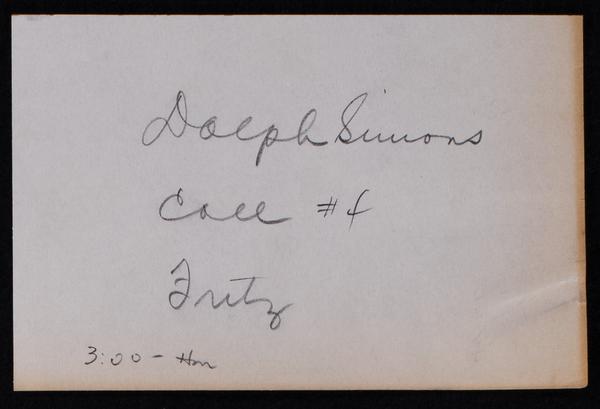 Dolph Simons
Call #4
Fritz
3:00 -